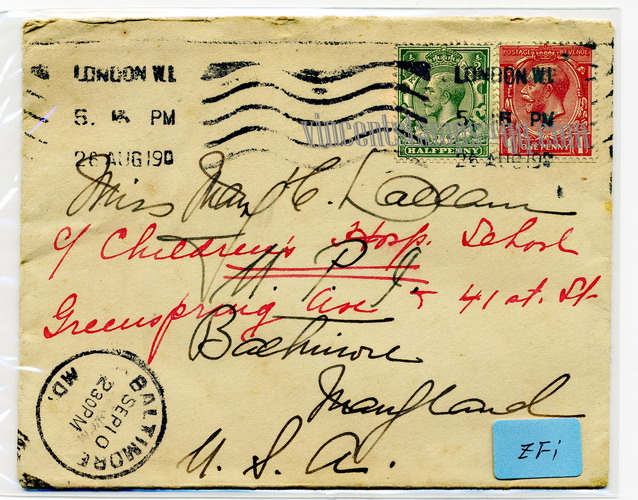 LONDON W.1.
5. PM
26 AUG 19
POSTAGE REVENUE
HALFPENNY
ONE PENNY
LONDON W.1.
5. PM
26 AUG 19
Miss May C. Lallam
c/ Children's Hosp. School
H. P. I.
Greenspring Ave & 41 st. St
Baltimore
Maryland
U. S. A.
BALTIMORE
MD.
SEP 10
230 PM
ZFi